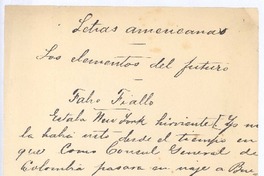 Letras americanas
Los elementos del futuro
Fabio Fiallo
Estaba New York hirviente! Yo no
la había visto desde el tiempo en
que como Consul General de
Colombia pasara en viaje a Bue